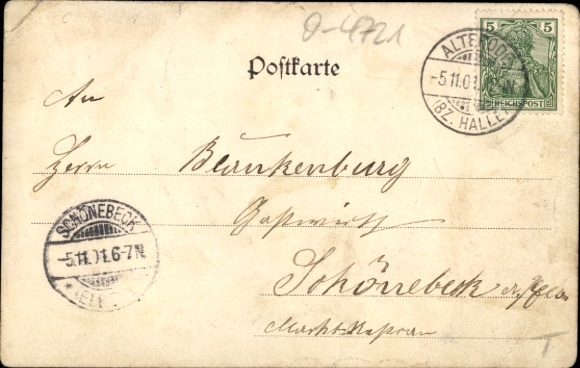 0-4721
Postkarte
5 5
REICHSPOST
ALTERODE
-5.11.01.
(BZ. HALLE)
An
Herrn Blankenburg
Gastwirth
Schönebeck a/Elbe
SCHÖNEBECK
-5.11.01.6-7N.
T